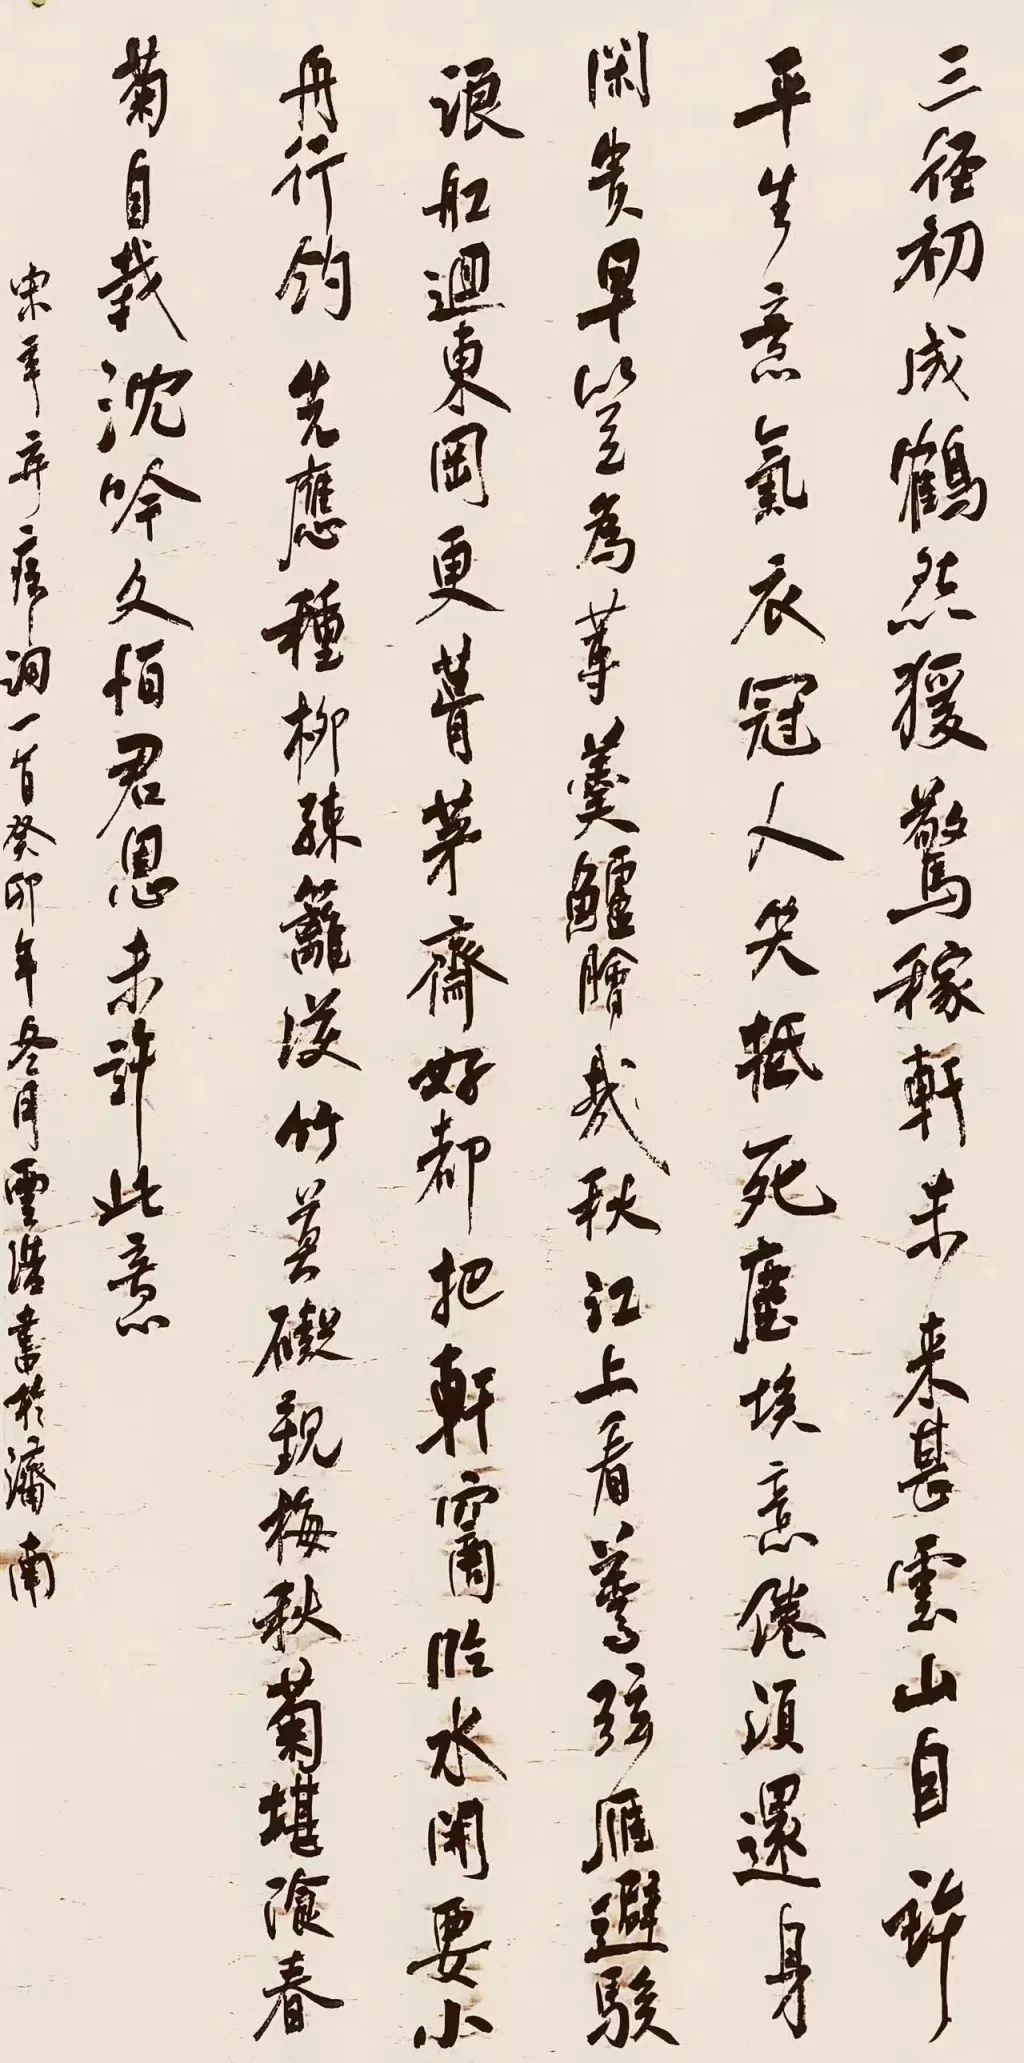 三径初成鶴怨猨驚稼軒未来甚雲山自許
平生意氣衣冠人笑抵死塵埃意倦須還身
閑貴早豈為蓴羹鱸膾哉秋江上看驚弦雁避駭
浪舡迴東岡更葺茅齋好都把軒窗臨水開要小
舟行釣先應種柳疎籬護竹莫礙觀梅秋菊堪湌春
菊自栽沈吟久怕君恩未許此意
宋辛弃疾詞一首癸卯年冬月雲浩書於濟南